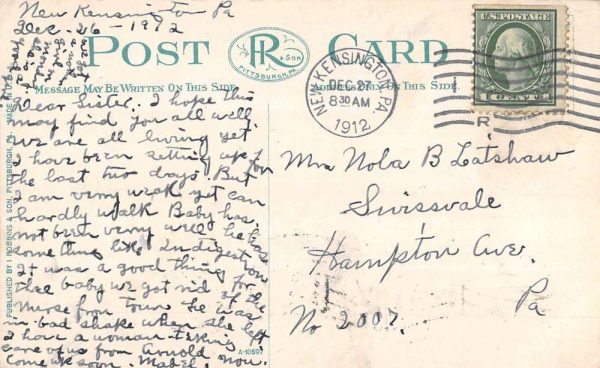 New Kensington Pa
Dec. 26 - 1912
POST CARD
R
& SON
PITTSBURGH, PA.
MESSAGE MAY BE WRITTEN ON THIS SIDE
ADDRESS ON THIS SIDE.
Dear Sister. I hope this
may find you all well.
we are all living yet
I have been setting up for
the last two days. But
I am verny weak yet can
hardly walk Baby has
not been verny well he has
something like Indigestion
It was a good thing for the
the baby we got rid of the
nurse from town he was
in bad shape when she left
I have a woman taking
care of us from Arnold now.
Come up soon. Mabel.
PUBLISHED BY I ROBBINS & SON, PITTSBURGH, PA.
MADE IN U.S.A.
A-10697
NEW KENSINGTON, PA.
DEC 27
8 30 AM
1912
R
U.S. POSTAGE
1 CENT 1
Mrs Nola B Latshaw
Swissvale
Hampton Ave.
Pa
No 2007.